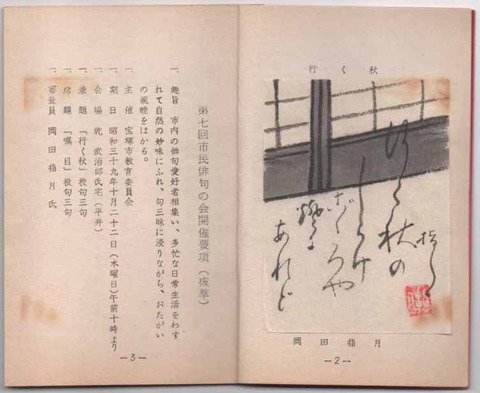 行く秋
岡田指月
—2—
第七回市民俳句の会開催要項(抜萃)
一、趣旨 市内の俳句愛好者相集い、多忙な日常生活をわす
れて自然の妙味にふれ、句三昧に浸りながら、おたがい
の親睦をはかる。
一、主催 宝塚市教育委員会
一、期日 昭和三十九年十月二十二日(木曜日)午前十時より
一、会場 乾 武治郎氏宅(平井)
一、兼題 「行く秋」投句三句
一、席題 「嘱目」投句三句
一、審査員 岡田指月氏
—3—